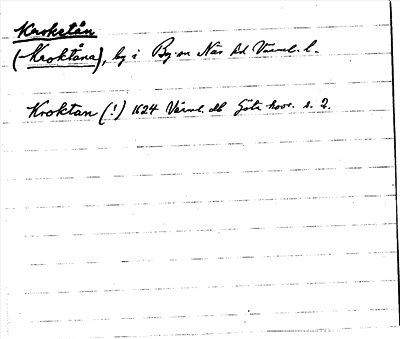 Krokstån
(Kroktåna), by i By sn Näs hd Värml. l.
Kroktan (!) 1624 Värml. db Göta hovr. s. 2.